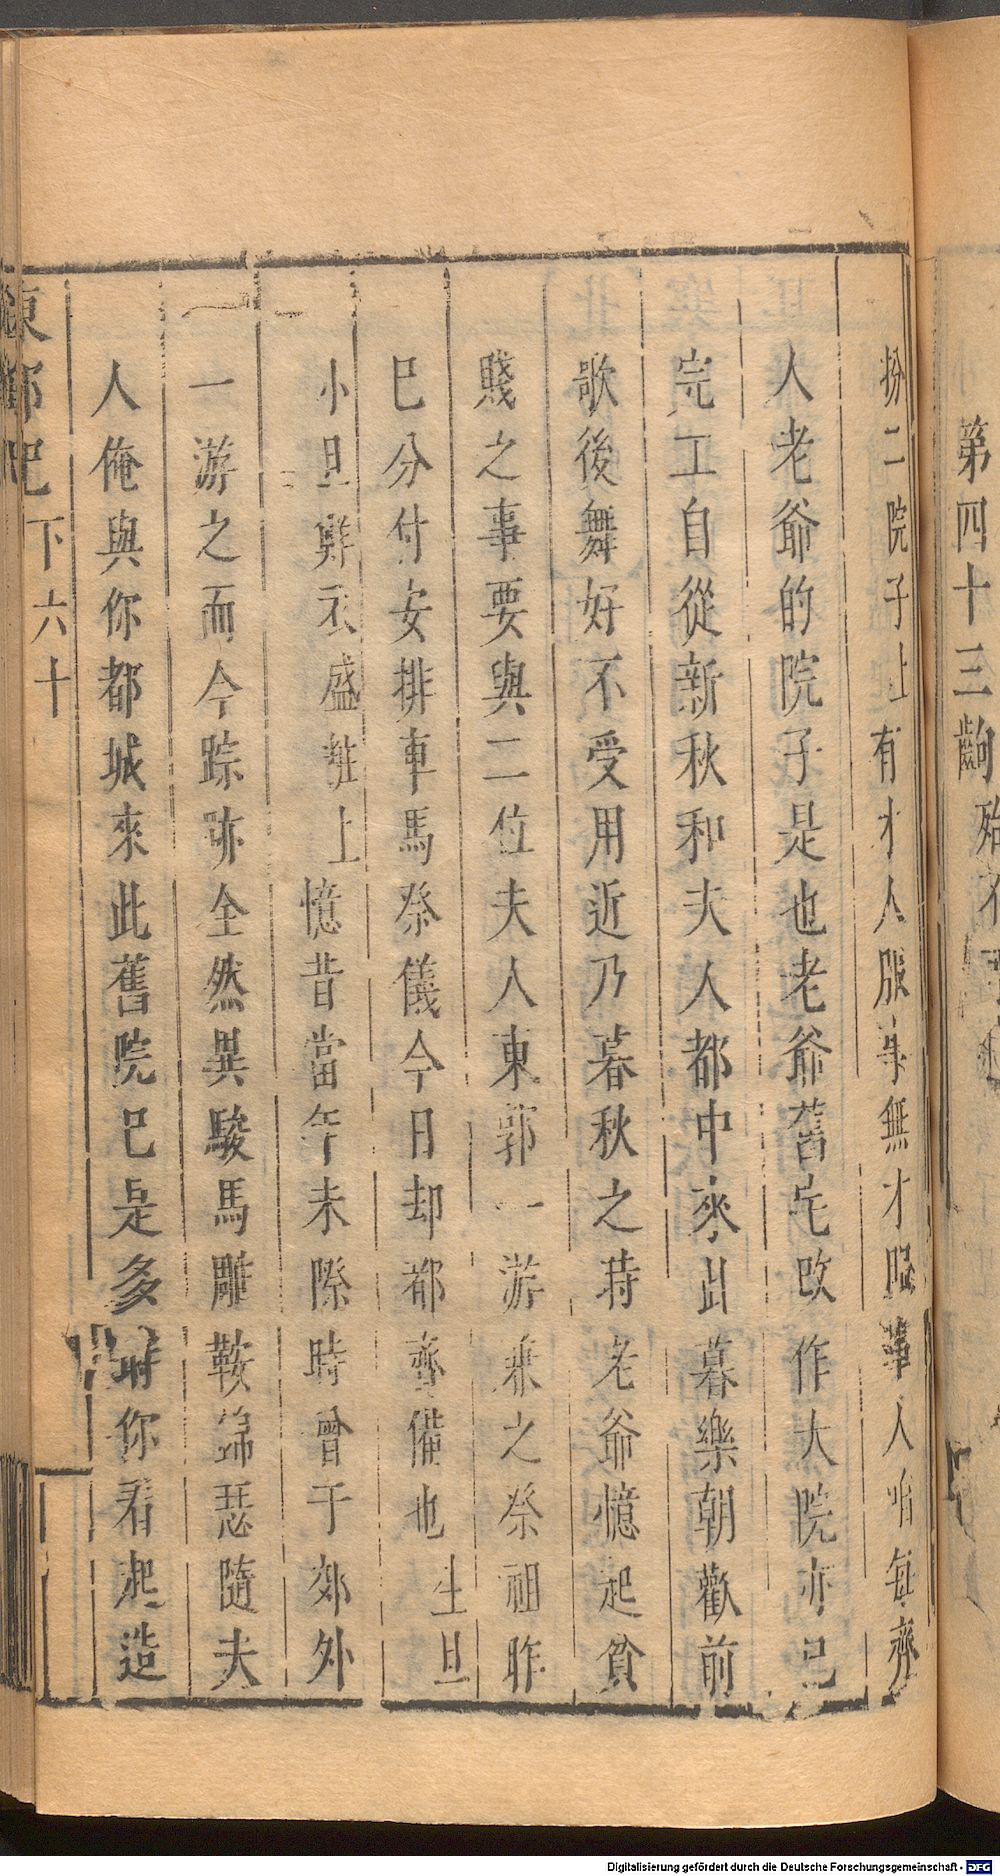 第四十三齣
扮二院子上有才人服事無才服事人咱每齊
人老爺的院子是也老爺舊宅改作大院亦已
完工自從新秋和夫人都中來此暮樂朝歡前
歌後舞好不受用近乃暮秋之時老爺憶起貧
賤之事要與二位夫人東郭一游兼之祭祖昨
已分付安排車馬祭儀今日却都齊備也生旦
小旦鮮衣盛粧上憶昔當年未際時曾于郊外
一游之而今踪跡全然異駿馬雕鞍錦瑟隨夫
人俺與你都城來此舊院已是多時你看起造
東郭記下六十
Digitalisierung gefördert durch die Deutsche Forschungsgemeinschaft - DFG